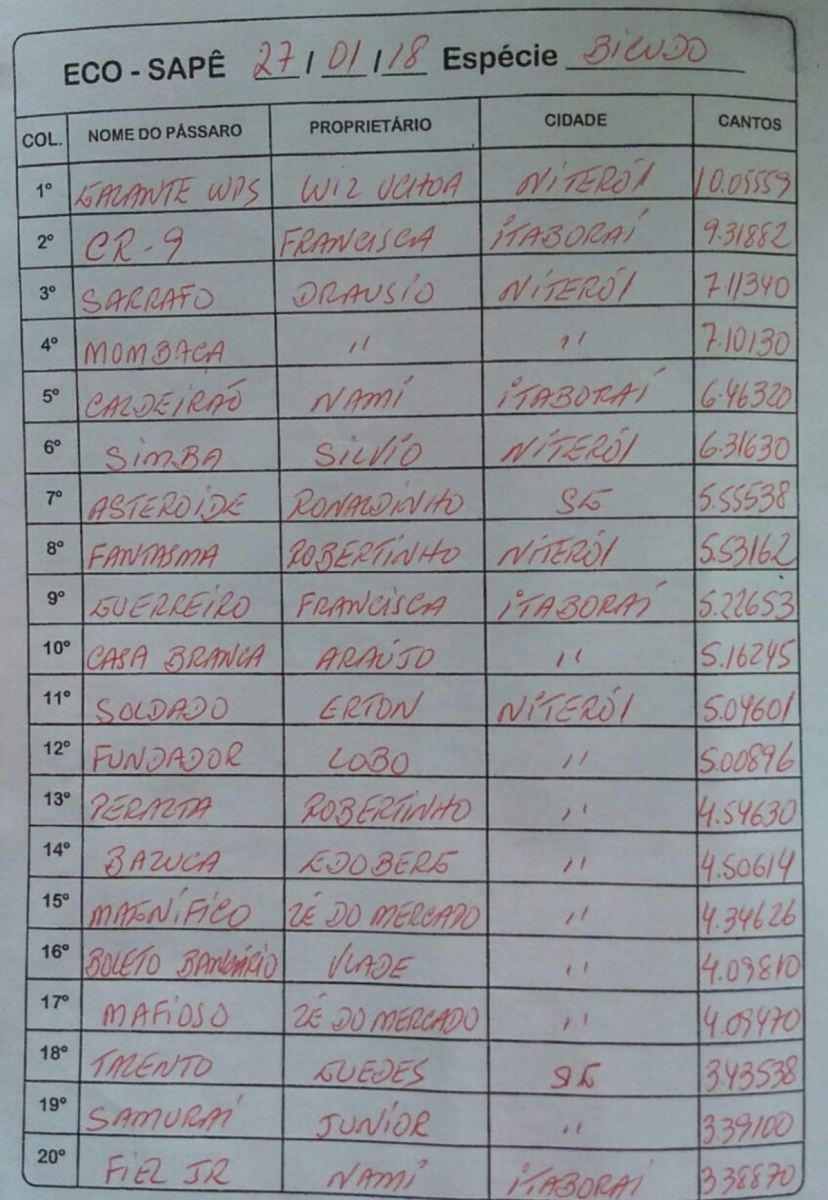 ECO - SAPÊ 27/01/18 Espécie BICUDO
COL. NOME DO PÁSSARO PROPRIETÁRIO CIDADE CANTOS
1º GALANTE WPS WIZ UCHOA NITERÓI 10.05559
2º CR-9 FRANCISCA ITABORAÍ 9.31882
3º SARRAFO DRAUSIO NITERÓI 7.11340
4º MOMBACA " " 7.10130
5º CALDEIRÃO NAMI ITABORAÍ 6.46320
6º SIMBA SILVIO NITERÓI 6.31630
7º ASTEROIDE RONALDINHO SG 5.55538
8º FANTASMA ROBERTINHO NITERÓI 5.53162
9º GUERREIRO FRANCISCA ITABORAÍ 5.22653
10º CASA BRANCA ARAÚJO " 5.16245
11º SOLDADO ERTON NITERÓI 5.04601
12º FUNDADOR LOBO " 5.00896
13º PERALTA ROBERTINHO " 4.54630
14º BAZUCA EDOBERG " 4.50614
15º MAGNÍFICO ZÉ DO MERCADO " 4.34626
16º BOLETO BANCÁRIO VLADE " 4.09810
17º MAFIOSO ZÉ DO MERCADO " 4.09470
18º TALENTO GUEDES SG 3.43538
19º SAMURAI JUNIOR " 3.39100
20º FIEL JR NAMI ITABORAÍ 3.38870